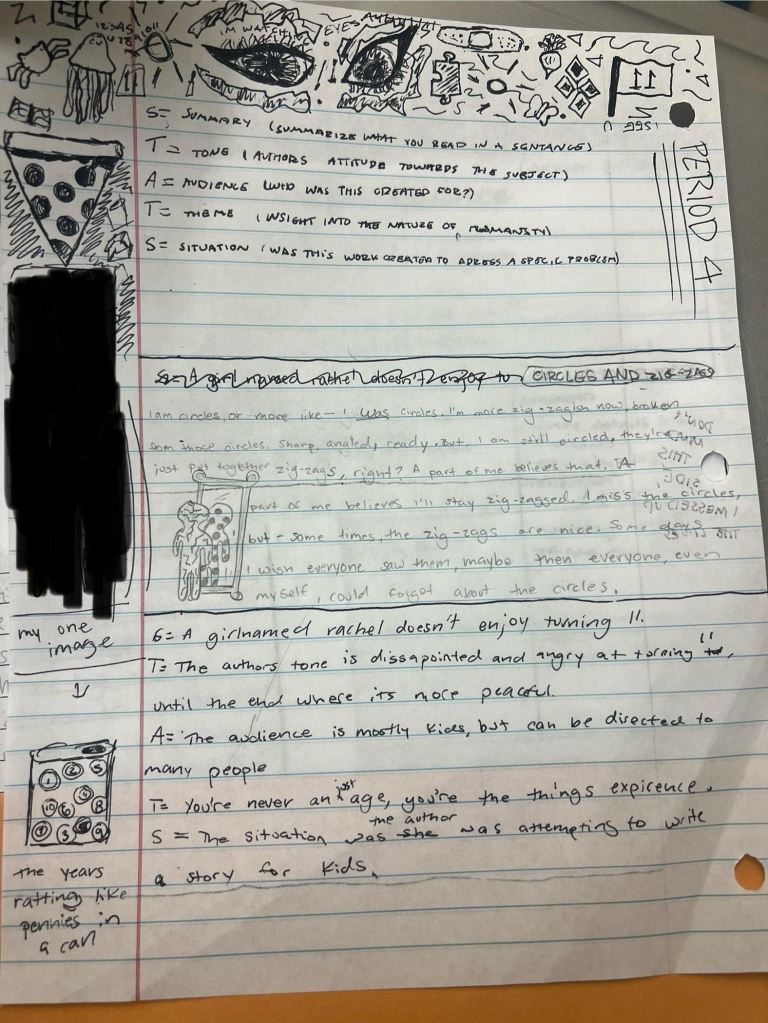 I'M WATCH
EYES
S= SUMMARY (SUMMARIZE WHAT YOU READ IN A SENTANCE)
T= TONE (AUTHORS ATTITUDE TOWARDS THE SUBJECT)
A= AUDIENCE (WHO WAS THIS CREATED FOR?)
T= THEME (INSIGHT INTO THE NATURE OF HUMANITY)
S= SITUATION (WAS THIS WORK CREATED TO ADRESS A SPECIFIC PROBLEM)
PERIOD 4
11
S= A girl named rachel doesn't enjoy to CIRCLES AND ZIG-ZAGS
I am circles, or more like - I was circles. I'm more zig-zagish now, broken
from those circles. Sharp, angled, ready. But, I am still circled, they're
just put together zig-zags, right? A part of me believes that. A
part of me believes I'll stay zig-zagged. I miss the circles,
but - some times, the zig-zags are nice. Some days
I wish everyone saw them, maybe then everyone, even
myself, could forget about the circles.
DON'T
THIS
SIDE,
I MESSED UP
my one
image
S= A girlnamed rachel doesn't enjoy turning 11.
T= The authors tone is dissapointed and angry at turning 11,
until the end where its more peaceful.
A= The audience is mostly kids, but can be directed to
many people
T= You're never an just age, you're the things expirence.
S = The situation was she the author was attempting to write
a story for kids.
the years
ratting like
pennies in
a can